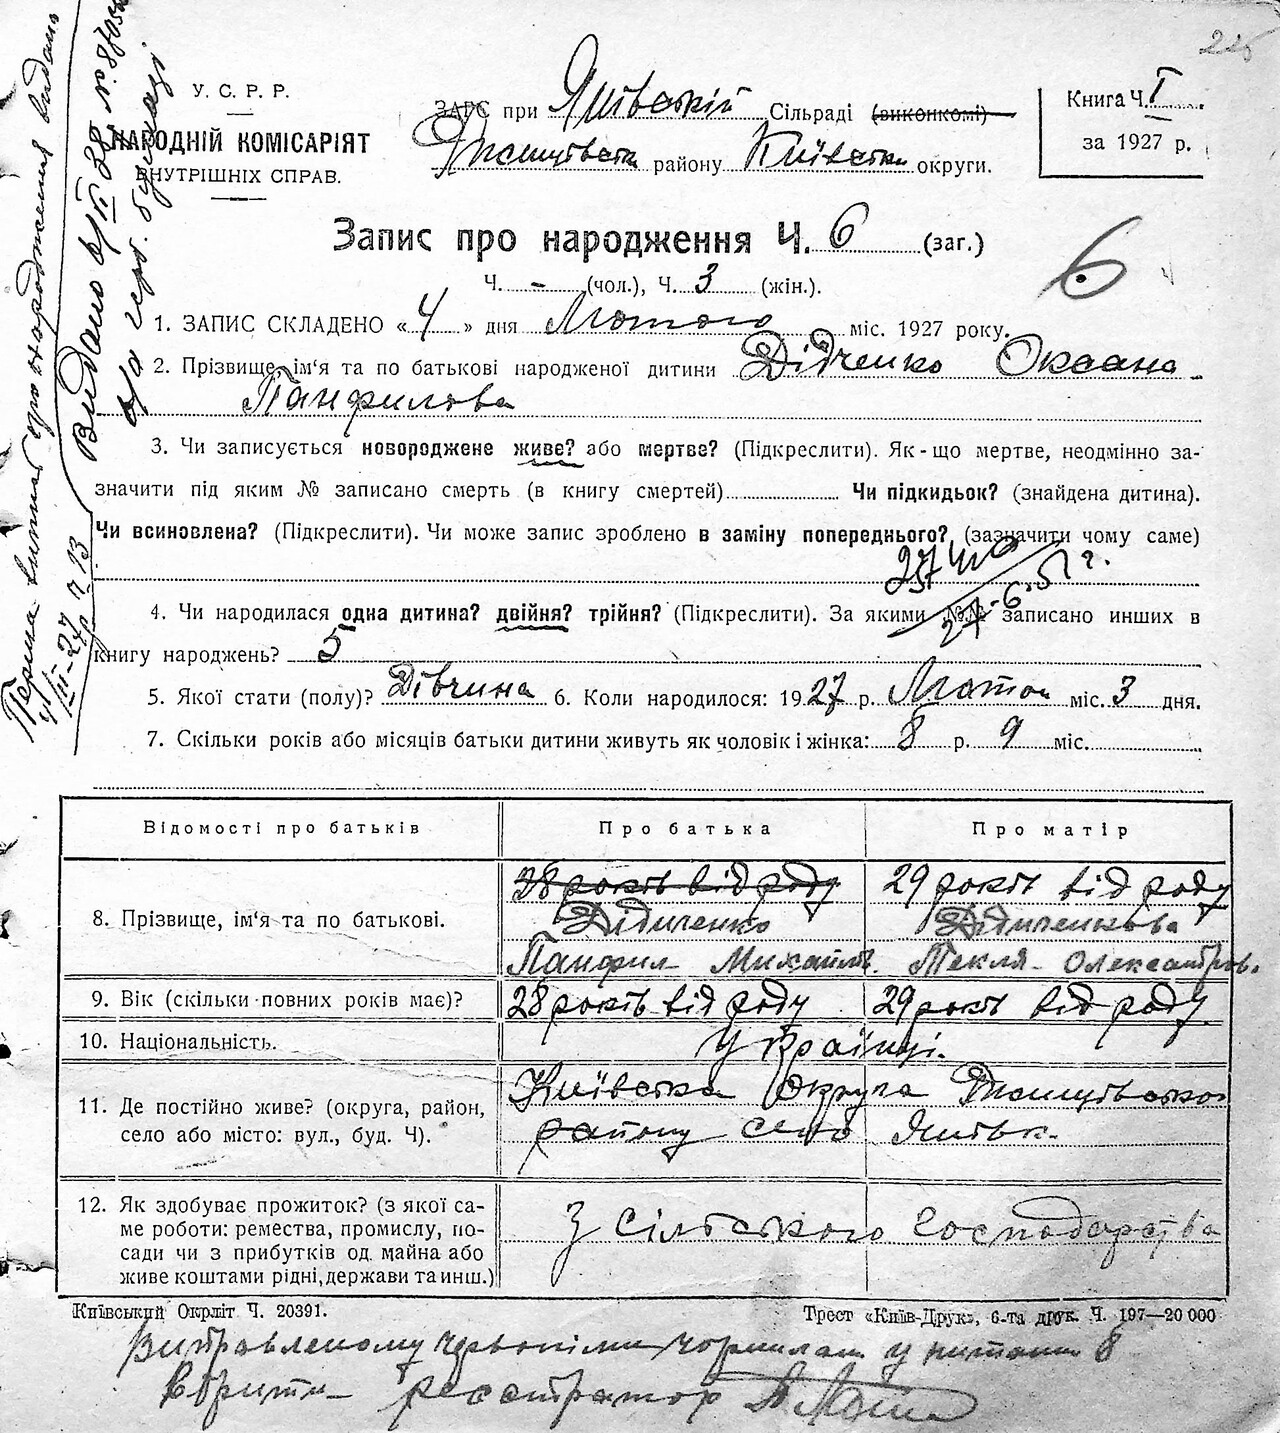 225
У. С. Р. Р.
НАРОДНІЙ КОМІСАРІЯТ
ВНУТРІШНІХ СПРАВ.
ЗАГС при Ямпільській Сільраді (виконкомі)
району Київська округи.
Книга Ч. I
за 1927 р.
Запис про народження Ч. 6 (заг.)
6
Ч. - (чол.), Ч. 3 (жін.).
1. ЗАПИС СКЛАДЕНО «4» дня Лютого міс. 1927 року.
2. Прізвище, ім'я та по батькові народженої дитини Дідченко Оксана
Панфилова
3. Чи записується новороджене живе? або мертве? (Підкреслити). Як-що мертве, неодмінно за-
значити під яким № записано смерть (в книгу смертей) Чи підкидьок? (знайдена дитина).
Чи всиновлена? (Підкреслити). Чи може запис зроблено в заміну попереднього? (зазначити чому саме)
27-6-51 г.
4. Чи народилася одна дитина? двійня? трійня? (Підкреслити). За якими №№ записано инших в
книгу народжень? 5
5. Якої стати (полу)? Дівчина 6. Коли народилося: 1927 р. Лютого міс. 3 дня.
7. Скільки років або місяців батьки дитини живуть як чоловік і жінка: 8 р. 9 міс.
Відомості про батьків Про батька Про матір
28 років від роду 29 років від роду
8. Прізвище, ім'я та по батькові. Дідченко Дідченкова
Панфил Михайлов. Текля Олександров.
9. Вік (скільки повних років має)? 28 років від роду 29 років від роду
10. Національність. Українці.
11. Де постійно живе? (округа, район, Київська округа
село або місто: вул., буд. Ч). району село
12. Як здобуває прожиток? (з якої са-
ме роботи: ремества, промислу, по-
сади чи з прибутків од майна або
живе коштами рідні, держави та инш.)
З сільського господарства
Київський Окрліт Ч. 20391. Трест «Київ-Друк», 6-та друк. Ч. 197—20 000
Виправленому червоними чорнилам у питанні 8
вірити реєстратор
Перша виписка про народження видана
4/II-27 р. ч 13
Видано